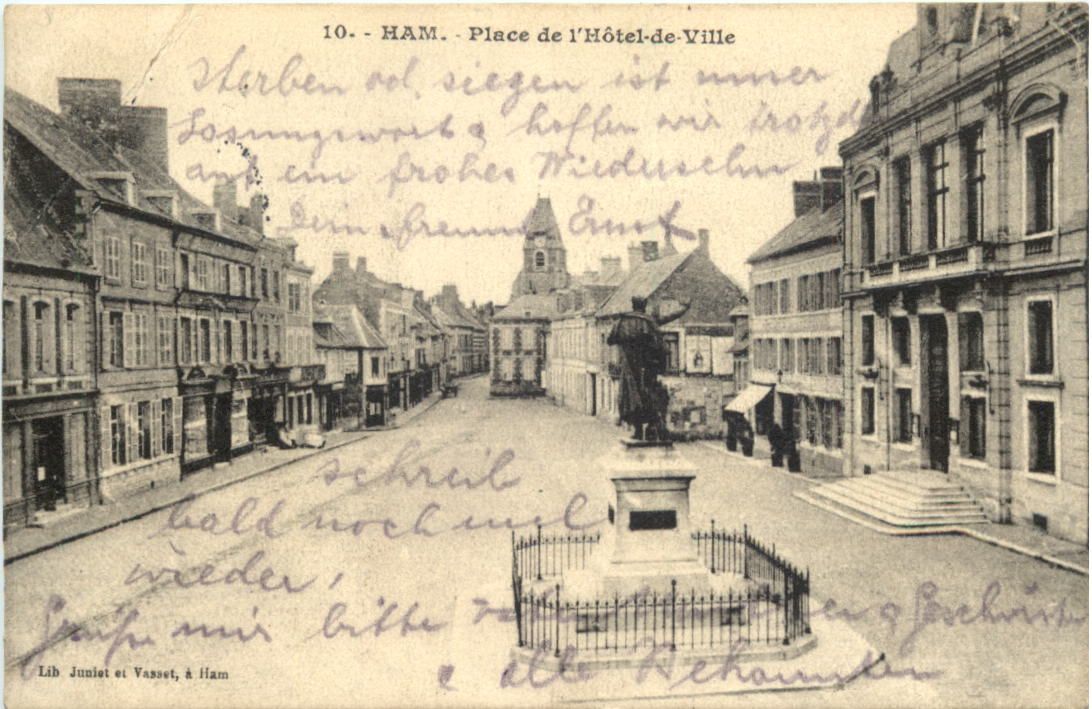 10. - HAM. - Place de l'Hôtel-de-Ville
Sterben od. siegen ist unser
Losungswort & hoffen wir trotzd
auf ein frohes Wiedersehn
Dein Freund Ernst
schreib
bald noch mal
wieder,
Grüße mir bitte Geschwister
& alle Bekannten
Lib Juniet et Vasset, à Ham